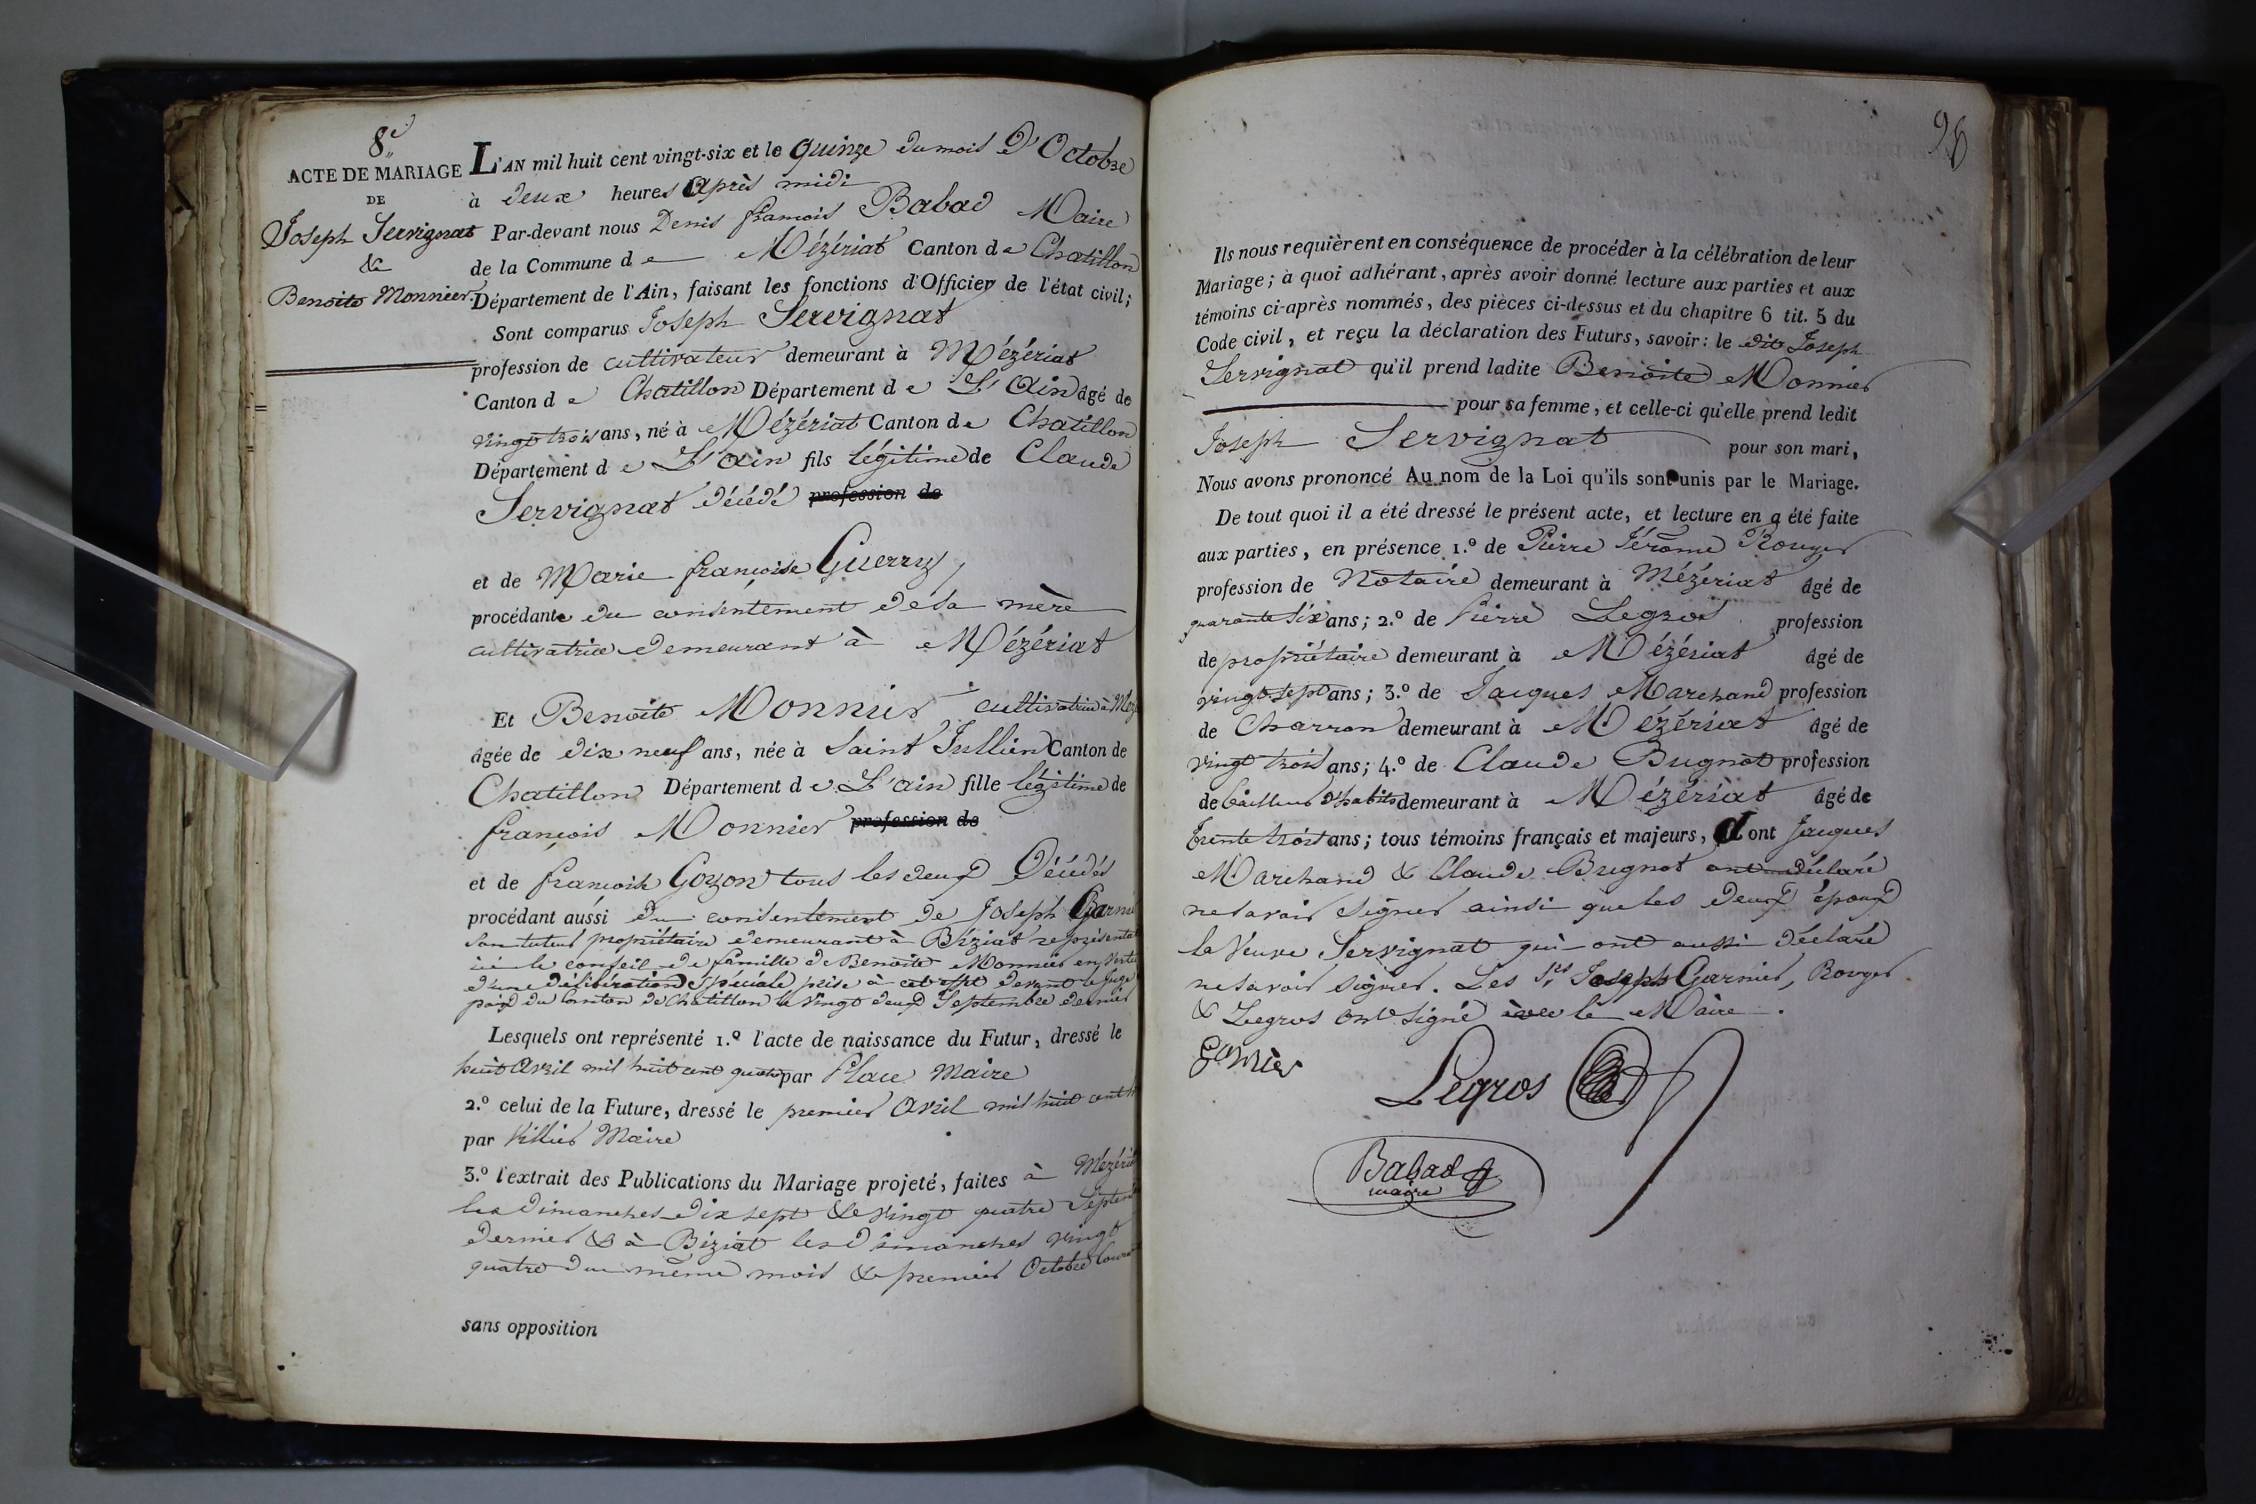 8e
ACTE DE MARIAGE
DE
Joseph Servignat
&
Benoite Monnier.
L'AN mil huit cent vingt-six et le quinze du mois d'Octobre
à deux heures après midi
Par-devant nous Denis françois Babad Maire
de la Commune de Mézériat Canton de Chatillon
Département de l'Ain, faisant les fonctions d'Officier de l'état civil;
Sont comparus Joseph Servignat
profession de cultivateur demeurant à Mézériat
Canton de Chatillon Département de L'ain âgé de
vingt trois ans, né à Mézériat Canton de Chatillon
Département de L'ain fils légitime de Claude
Servignat décédé profession de
et de Marie françoise Guerry
procédant du consentement de sa mère
cultivatrice demeurant à Mézériat
Et Benoite Monnier cultivatrice à Méz
âgée de dix neuf ans, née à Saint Jullien Canton de
Chatillon Département de L'ain fille légitime de
françois Monnier profession de
et de françoise Goyon tous les deux Décédés
procédant aussi du consentement de Joseph Garnier
son tuteur propriétaire demeurant à Biziat représentant
ici le conseil de famille de Benoite Monnier en vertu
d'une délibération spéciale prise à cet effet devant le Juge
paix du Canton de Chatillon le vingt deux Septembre dernier
Lesquels ont représenté 1.º l'acte de naissance du Futur, dressé le
huit avril mil huit cent quatre par Place Maire
2.º celui de la Future, dressé le premier avril mil huit cent
par Maire
3.º l'extrait des Publications du Mariage projeté, faites à Mézériat
les dimanches dix sept & vingt quatre Septembre
dernier & à Biziat les dimanches vingt
quatre du même mois & premier Octobre courant
sans opposition
98
Ils nous requièrent en conséquence de procéder à la célébration de leur
Mariage; à quoi adhérant, après avoir donné lecture aux parties et aux
témoins ci-après nommés, des pièces ci-dessus et du chapitre 6 tit. 5 du
Code civil, et reçu la déclaration des Futurs, savoir: le dit Joseph
Servignat qu'il prend ladite Benoite Monnier
pour sa femme, et celle-ci qu'elle prend ledit
Joseph Servignat pour son mari,
Nous avons prononcé Au nom de la Loi qu'ils sont unis par le Mariage.
De tout quoi il a été dressé le présent acte, et lecture en a été faite
aux parties, en présence 1.º de Pierre Jérome Rouyer
profession de Notaire demeurant à Mézériat âgé de
quarante six ans; 2.º de Pierre Legros profession
de propriétaire demeurant à Mézériat âgé de
vingt sept ans; 3.º de Jacques Marchand profession
de Charron demeurant à Mézériat âgé de
vingt trois ans; 4.º de Claude Bugnot profession
de tailleur d'habits demeurant à Mézériat âgé de
Trente trois ans; tous témoins français et majeurs, dont Jacques
Marchand & Claude Bugnot ont déclaré
ne savoir signer ainsi que les deux époux
la Veuve Servignat qui ont aussi déclaré
ne savoir signer. Les Srs Joseph Garnier, Rouyer
& Legros ont signé avec le Maire.
Garnier
Legros
Babad
maire